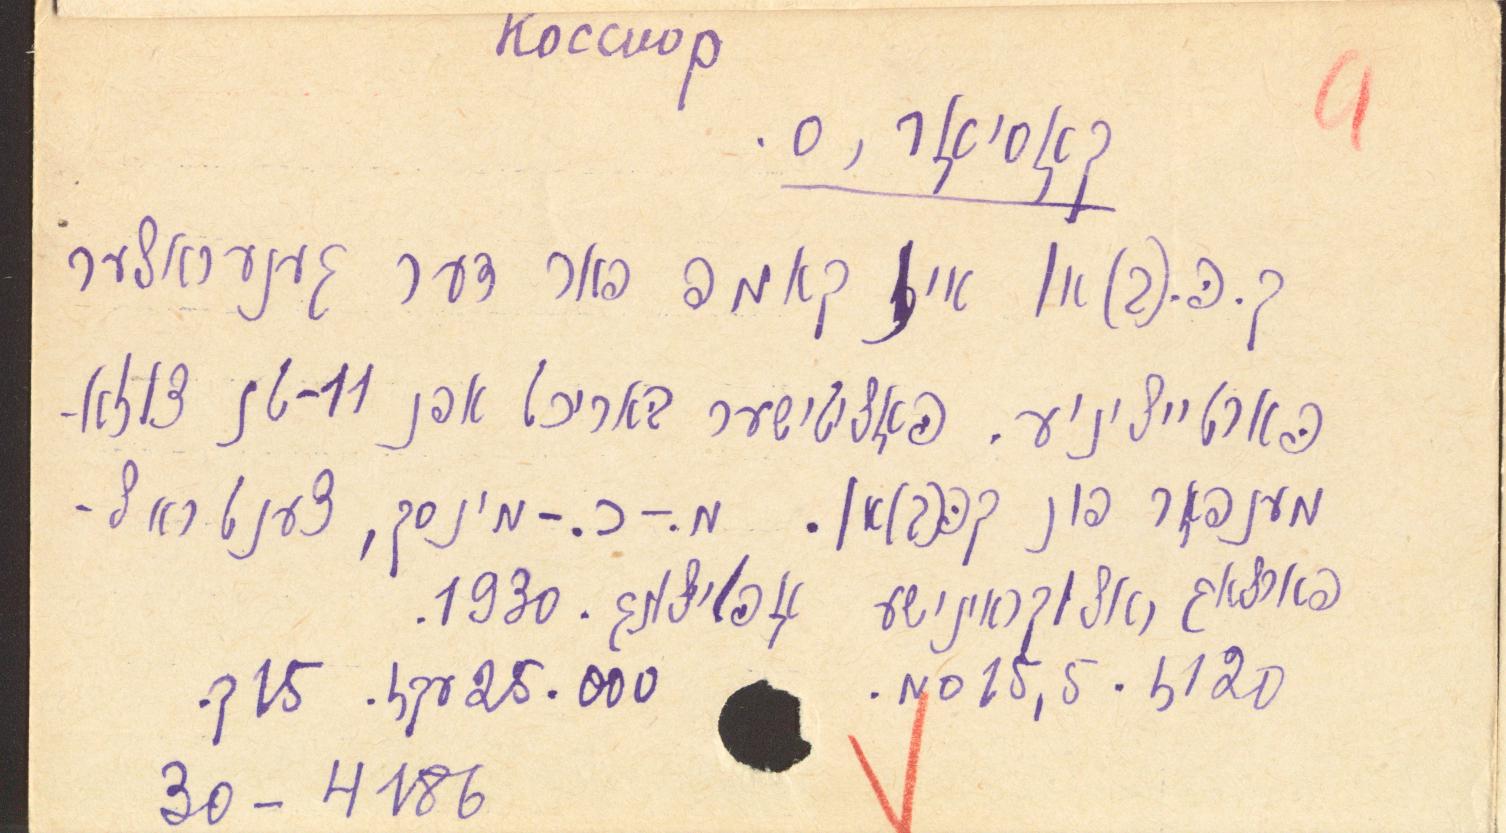 Коссиор
a
קאָסיאָר, ס.
ק.פּ.(ב)או אין קאמפ פאר דער גענעראלער
פּארטייליניע. פּאָליטישער באריכט אפן 11-טן צוזא-
מענפאָר פון קפּ(ב)או. מ.-כ.-מינסק, צענטראל-
פארלאג, אלוקראינישע אָפּטיילונג. 1930.
120ז. 15,5סמ. 25.000עקז. 15ק.
30-4186